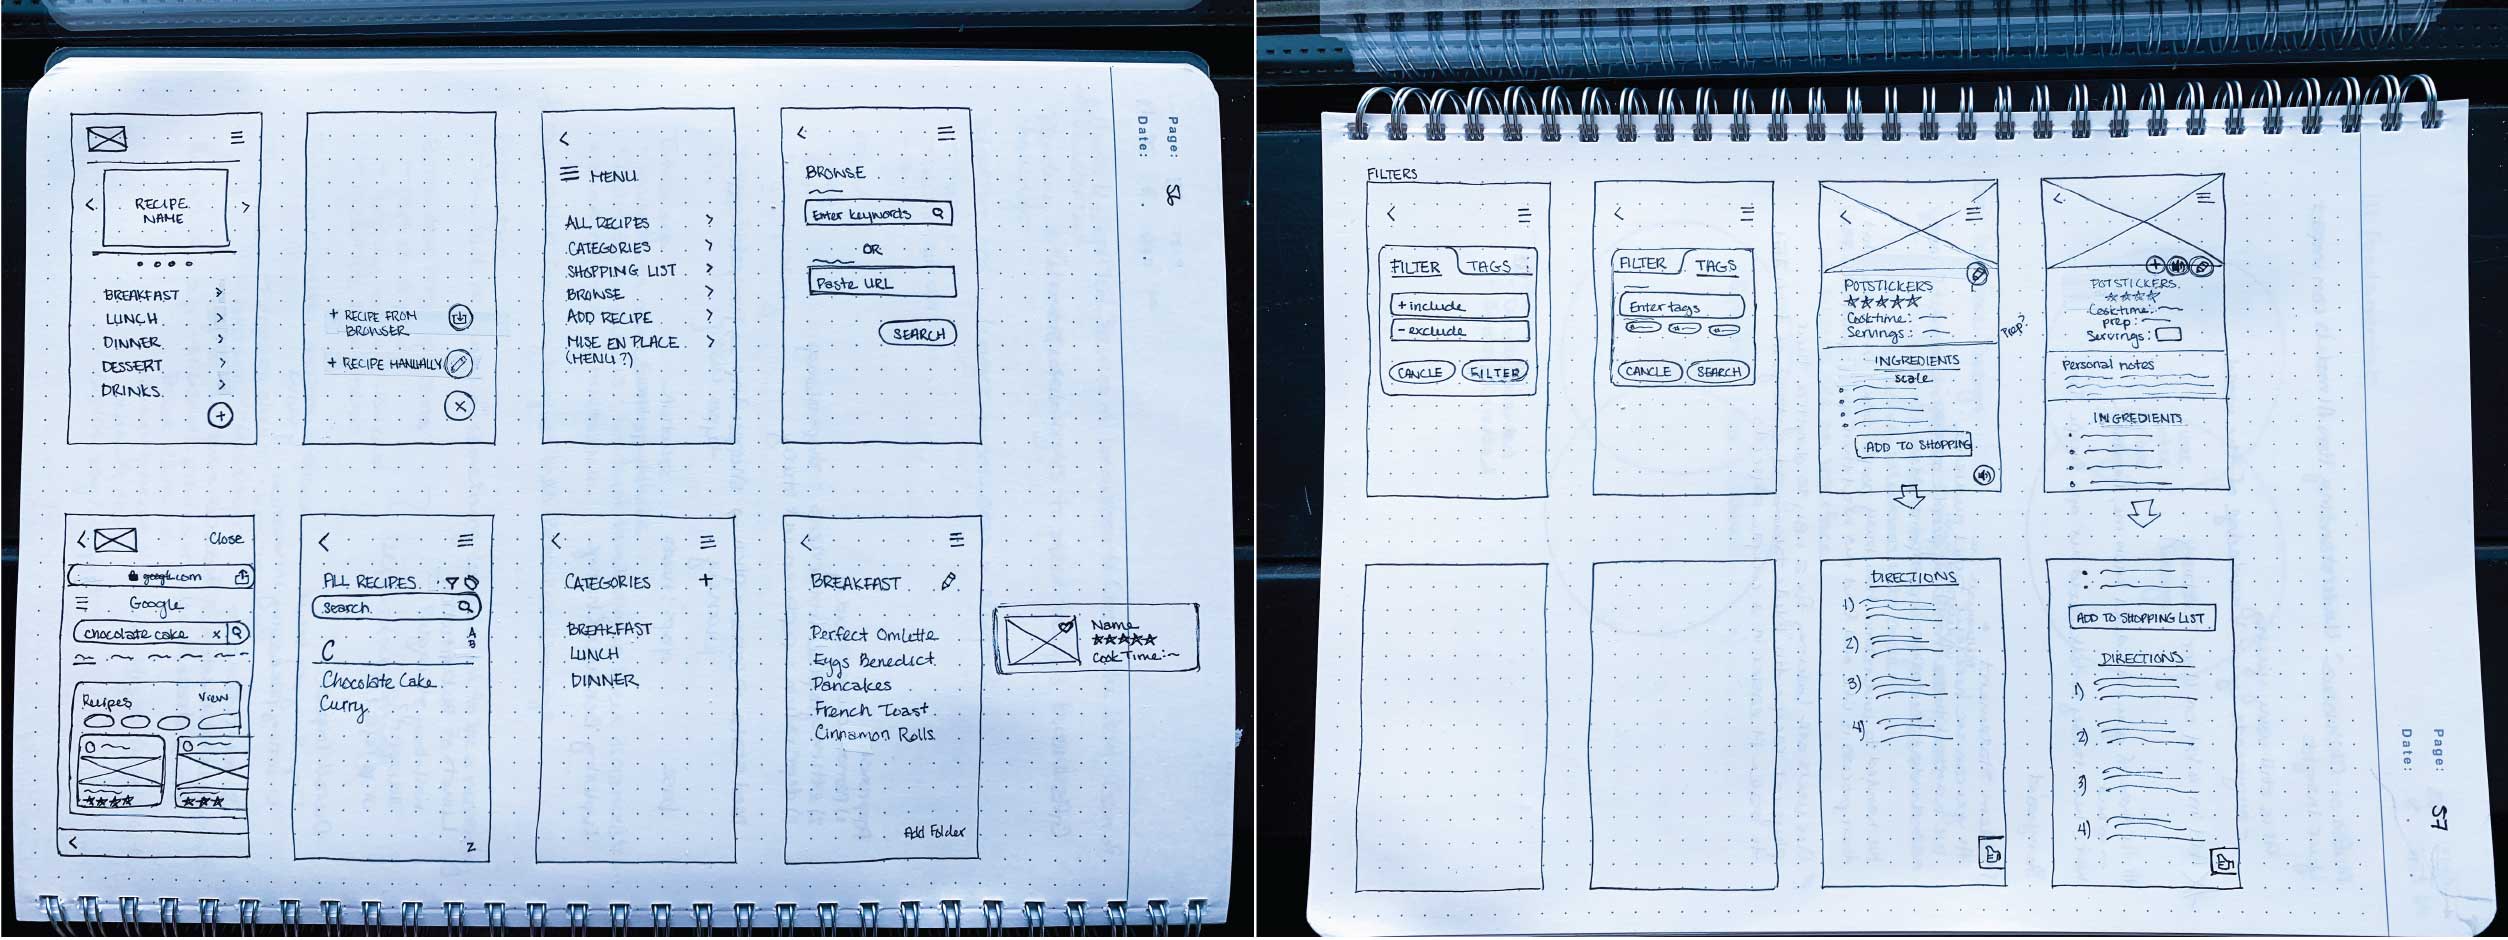 RECIPE
NAME
BREAKFAST
LUNCH
DINNER
DESSERT
DRINKS
+ RECIPE FROM
BROWSER
+ RECIPE MANUALLY
MENU
ALL RECIPES
CATEGORIES
SHOPPING LIST
BROWSE
ADD RECIPE
MISE EN PLACE
(MENU?)
BROWSE
Enter keywords
OR
Paste URL
SEARCH
Page: 56
Date:
Close
google.com
Google
chocolate cake x
Recipes View
ALL RECIPES
Search
A
B
C
Chocolate Cake
Curry
Z
CATEGORIES +
BREAKFAST
LUNCH
DINNER
BREAKFAST
Perfect Omlette
Eggs Benedict
Pancakes
French Toast
Cinnamon Rolls
Add Folder
Name
Cook Time:~
FILTERS
FILTER TAGS
+ include
- exclude
CANCLE FILTER
FILTER TAGS
Enter tags
CANCLE SEARCH
POTSTICKERS
Cooktime:
Servings:
Prep?
INGREDIENTS
scale
ADD TO SHOPPING
POTSTICKERS
Cooktime:
prep:
Servings:
Personal notes
INGREDIENTS
DIRECTIONS
1)
2)
3)
4)
ADD TO SHOPPING LIST
DIRECTIONS
1)
2)
3)
4)
Page: 57
Date: